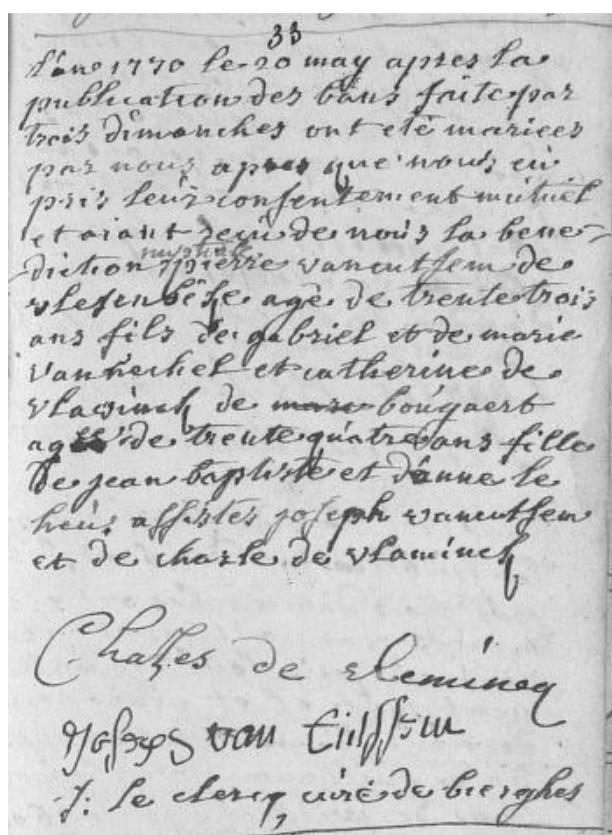 33
L'an 1770 le 20 may apres la
publication des bans faite par
trois dimanches ont eté mariees
par nous apres que nous eu
pris leur consentement mutuel
et aiant reçu de nous la bene-
diction nuptiale pierre vancutsem de
vlesenbeke agè de trente trois
ans fils de gabriel et de marie
vannechel et catherine de
vlaminck de bougaert
ageé de trente quatre ans fille
de jean baptiste et d'anne le
heus assistes joseph vancutsem
et de charle de vlaminck
Charles de vlemincq
Joseph van Cutssem
J: le clercq, curé de bierghes